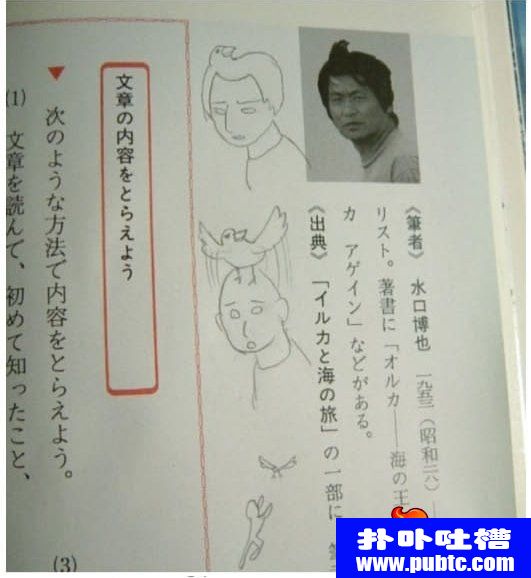 《筆者》 水口博也 一九五三(昭和二八)—
リスト。著書に「オルカ——海の王
カ アゲイン」などがある。
《出典》 「イルカと海の旅」の一部に、筆
文章の内容をとらえよう
▼ 次のような方法で内容をとらえよう。
(1) 文章を読んで、初めて知ったこと、
(3)
扑卟吐槽
www.pubtc.com